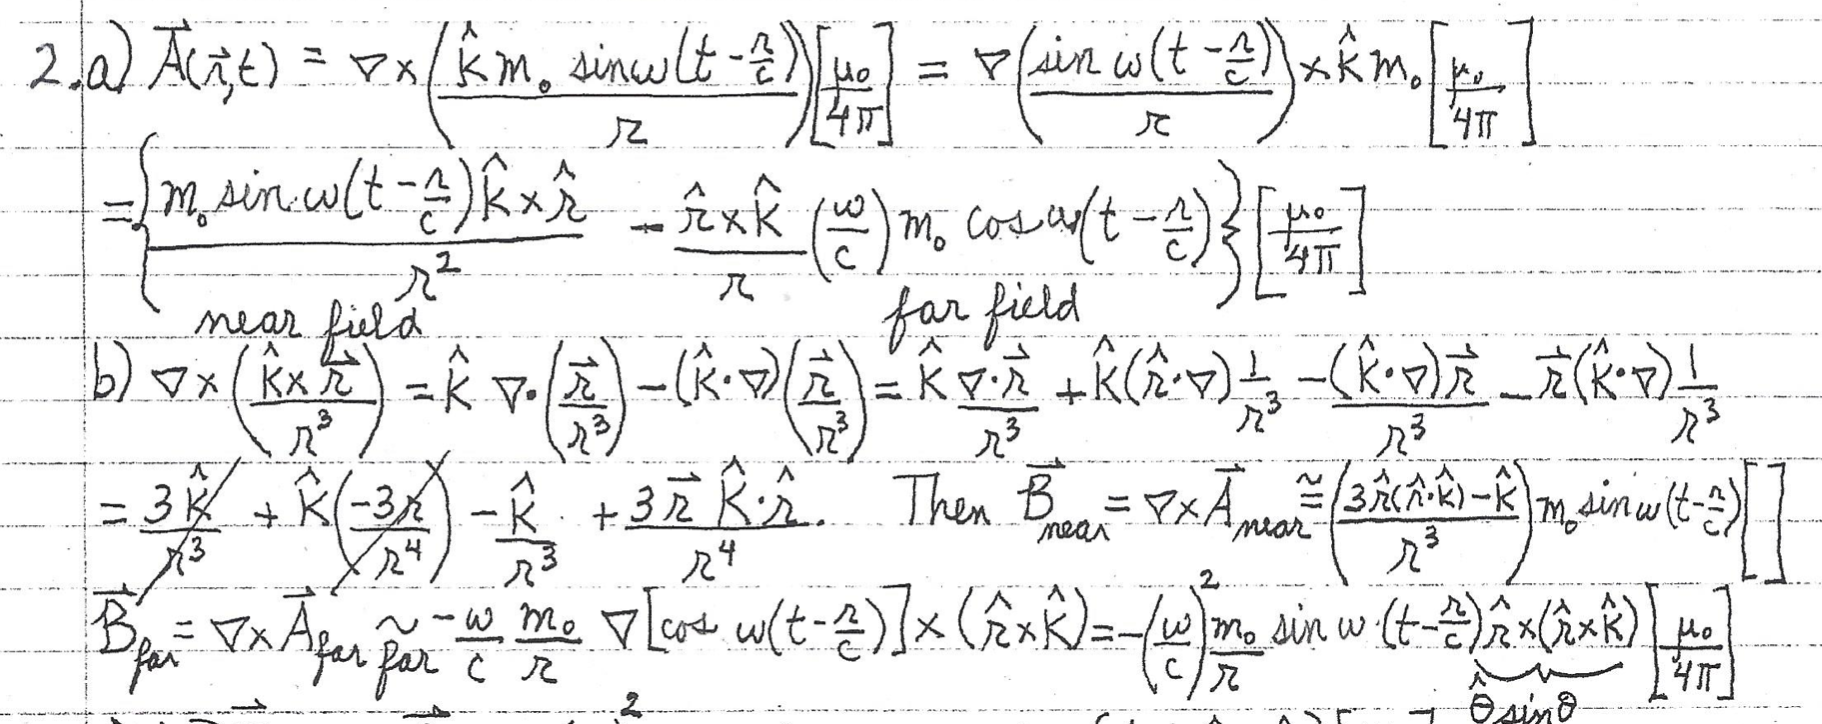 2.a) $\vec{A}(\vec{r},t) = \nabla \times \left(\frac{\hat{k} m_0 \sin\omega(t-\frac{r}{c})}{r}\right)\left[\frac{\mu_0}{4\pi}\right] = \nabla\left(\frac{\sin\omega(t-\frac{r}{c})}{r}\right) \times \hat{k} m_0 \left[\frac{\mu_0}{4\pi}\right]$
$= \left\{\frac{m_0 \sin\omega(t-\frac{r}{c}) \hat{k}\times\hat{r}}{r^2} - \frac{\hat{r}\times\hat{k}}{r}\left(\frac{\omega}{c}\right) m_0 \cos\omega(t-\frac{r}{c})\right\}\left[\frac{\mu_0}{4\pi}\right]$
near field far field
b) $\nabla \times \left(\frac{\hat{k}\times\vec{r}}{r^3}\right) = \hat{k}\, \nabla\cdot\left(\frac{\vec{r}}{r^3}\right) - (\hat{k}\cdot\nabla)\left(\frac{\vec{r}}{r^3}\right) = \hat{k}\frac{\nabla\cdot\vec{r}}{r^3} + \hat{k}(\hat{r}\cdot\nabla)\frac{1}{r^3} - \frac{(\hat{k}\cdot\nabla)\vec{r}}{r^3} - \vec{r}(\hat{k}\cdot\nabla)\frac{1}{r^3}$
$= \frac{3\hat{k}}{r^3} + \hat{k}\left(\frac{-3r}{r^4}\right) - \frac{\hat{k}}{r^3} + \frac{3\vec{r}\,\hat{k}\cdot\hat{r}}{r^4}.$ Then $\vec{B}_{near} = \nabla\times\vec{A}_{near} \cong \left(\frac{3\hat{r}(\hat{r}\cdot\hat{k})-\hat{k}}{r^3}\right) m_0 \sin\omega(t-\frac{r}{c})\left[\;\right]$
$\vec{B}_{far} = \nabla\times\vec{A}_{far} \underset{far}{\sim} \frac{-\omega}{c}\frac{m_0}{r} \nabla\left[\cos\omega(t-\frac{r}{c})\right]\times(\hat{r}\times\hat{k}) = -\left(\frac{\omega}{c}\right)^2 \frac{m_0}{r} \sin\omega(t-\frac{r}{c}) \underbrace{\hat{r}\times(\hat{r}\times\hat{k})}_{\hat{\theta}\sin\theta}\left[\frac{\mu_0}{4\pi}\right]$